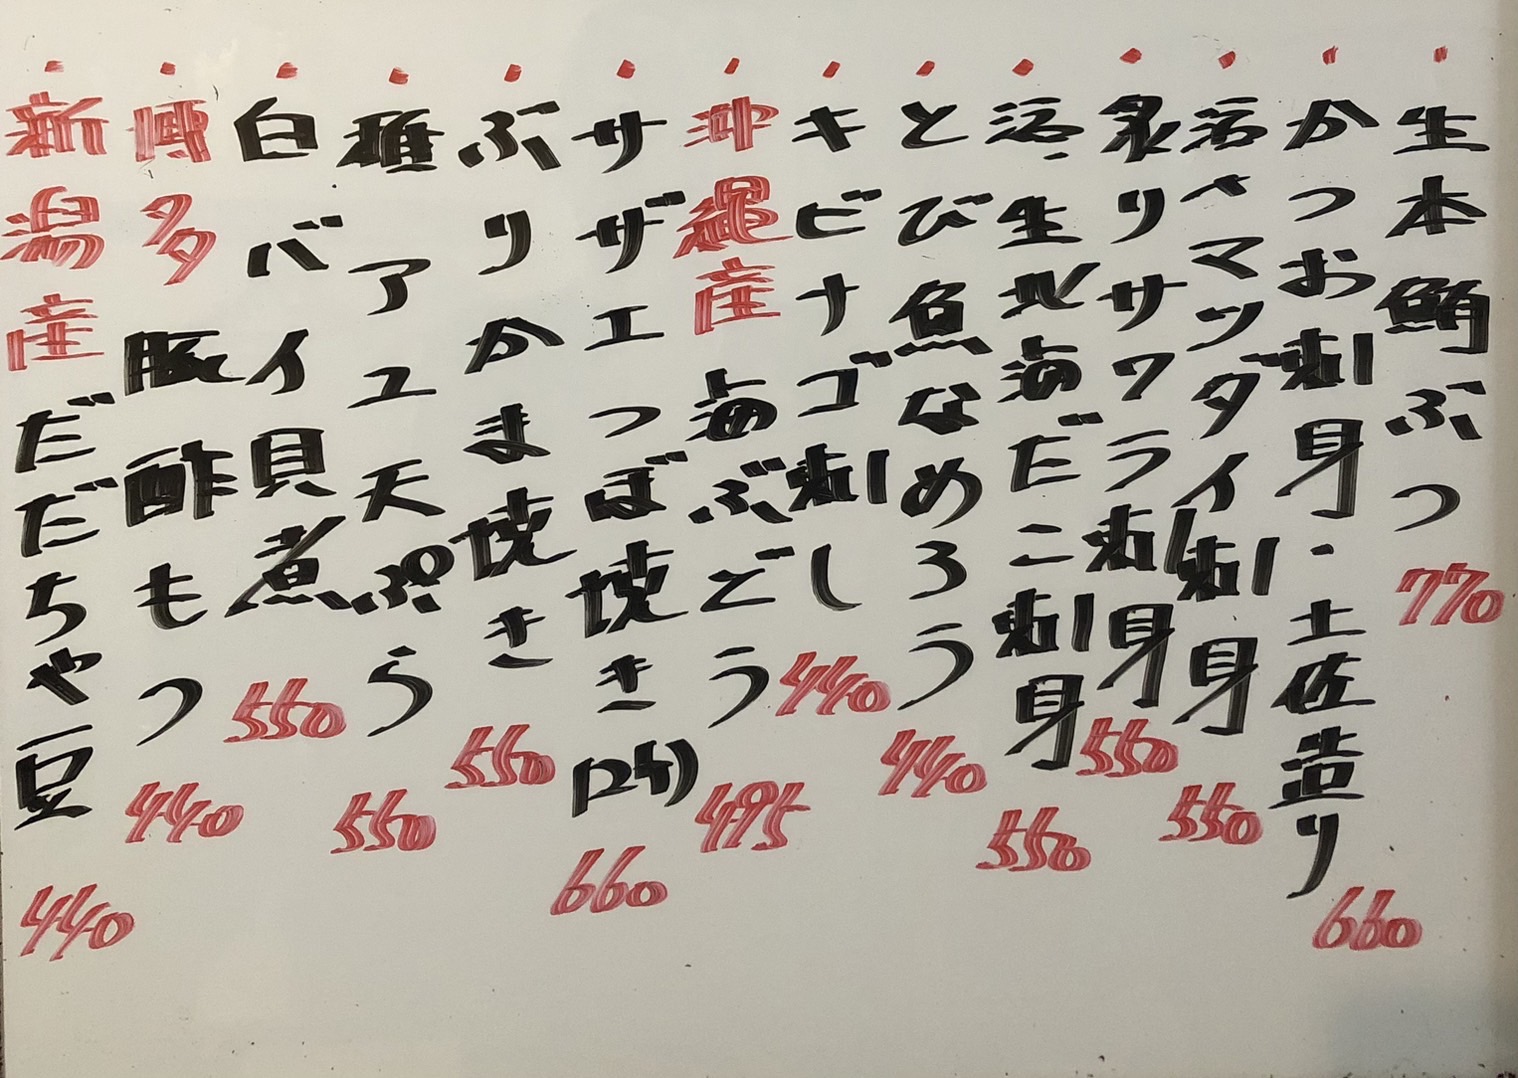 ・生本鮪ぶつ 770
・かつお刺身・土佐造り 660
・活〆マツダイ刺身 550
・炙りサワラ刺身 550
・活生北海だこ刺身 550
・とび魚なめろう 440
・キビナゴ刺し 440
・沖縄産 海ぶどう 495
・サザエつぼ焼き(2ヶ) 660
・ぶりかま焼き 550
・稚アユ天ぷら 550
・白バイ貝煮 550
・博多 豚酢もつ 440
・新潟産 だだちゃ豆 440